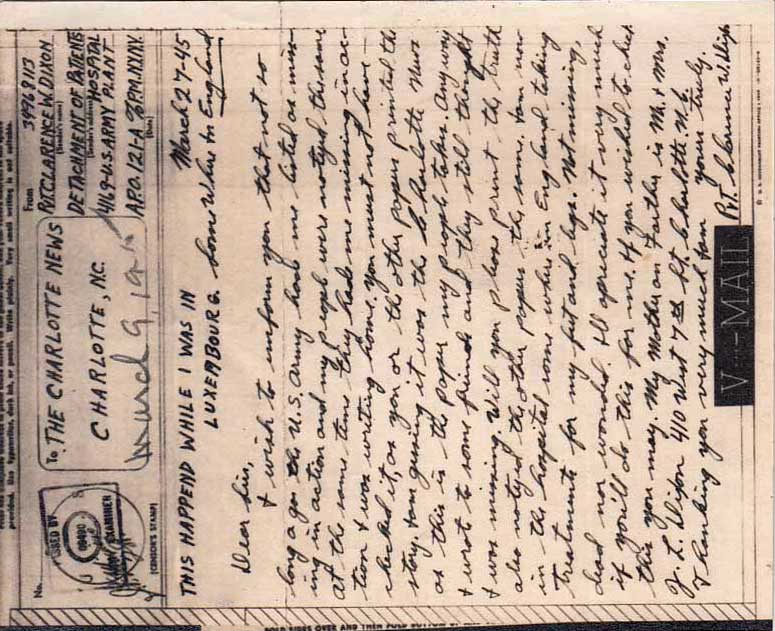 provided. Use typewriter, dark ink, or pencil. Write plainly. Very small writing is not suitable.
No.
PASSED BY
EXAMINER
(CENSOR'S STAMP)
To THE CHARLOTTE NEWS
CHARLOTTE, N.C.
March 9, 19
From 39968113
PVT. CLARENCE W. DIXON
(Sender's name)
DETACHMENT OF PATENS
(Sender's address) HOSPITAL
4169-U.S. ARMY PLANT
A.P.O. 121-A % P.M. N.Y. N.Y.
(Date)
THIS HAPPEND WHILE I WAS IN
LUXEMBOURG.
March 27-45
Some Where In England
Dear Sirs,
I wish to uniform you that not so
long ago the U.S. Army had me listed as miss-
ing in action and my people were notifyed the same
at the same time they had me missing in ac-
tion I was writing home. You must not have
checked it, as you or the other papers printed the
story. I am guessing it was the Charlotte News
as this is the paper my people takes. Any way
I wrote to some friends and they still thought
I was missing. Will you please print the truth
also notifyed the other papers the same. I am now
in the hospital some where in England taking
treatments for my feet and legs. Not missing,
dead nor wonded. I'll apreciate it very much
if you'll do this for me. If you wished to check
this you may. My Mother an Farther is Mr. & Mrs.
J. L. Dixon 410 West 7th St. Charlotte N.C.
Thanking you very much I am yours truly.
Pvt. Clarence W. Dixon
V···—MAIL
FOLD SIDES OVER AND THEN FOLD BOTTOM